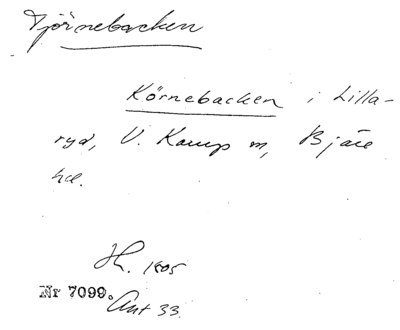 Tjörnebacken
Körnebacken i Lilla-
ryd, V. Karup sn, Bjäre
hd.
H. 1805
Nr 7099.
Ant 33.